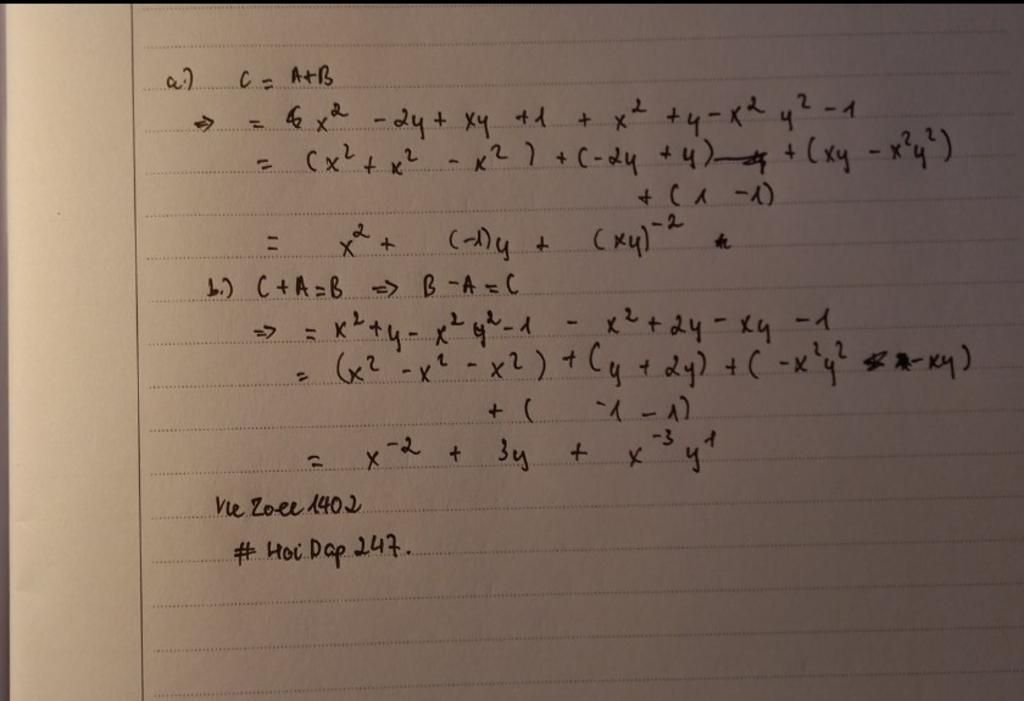 a.) C = A+B
⇒ = x² - 2y + xy + 1 + x² + y - x² y² - 1
= (x² + x² - x²) + (-2y + y) + (xy - x²y²)
+ (1 -1)
= x² + (-1)y + (xy)⁻²
b.) C + A = B ⇒ B - A = C
⇒ = x² + y - x² y² - 1 - x² + 2y - xy - 1
= (x² - x² - x²) + (y + 2y) + (-x²y² - xy)
+ ( -1 - 1)
= x⁻² + 3y + x⁻³ y¹
1402
# Hoi Dap 247.